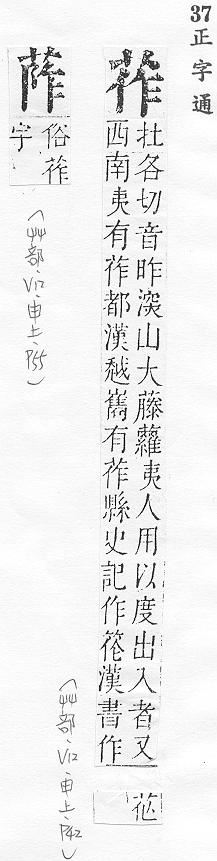 37正字通
莋
杜各切音昨深山大藤蘿夷人用以度出入者又
西南夷有莋都漢越巂有莋縣史記作漢書作
(艸部、V12、申上、P42)
俗莋
字
(艸部、V12、申上、P55)